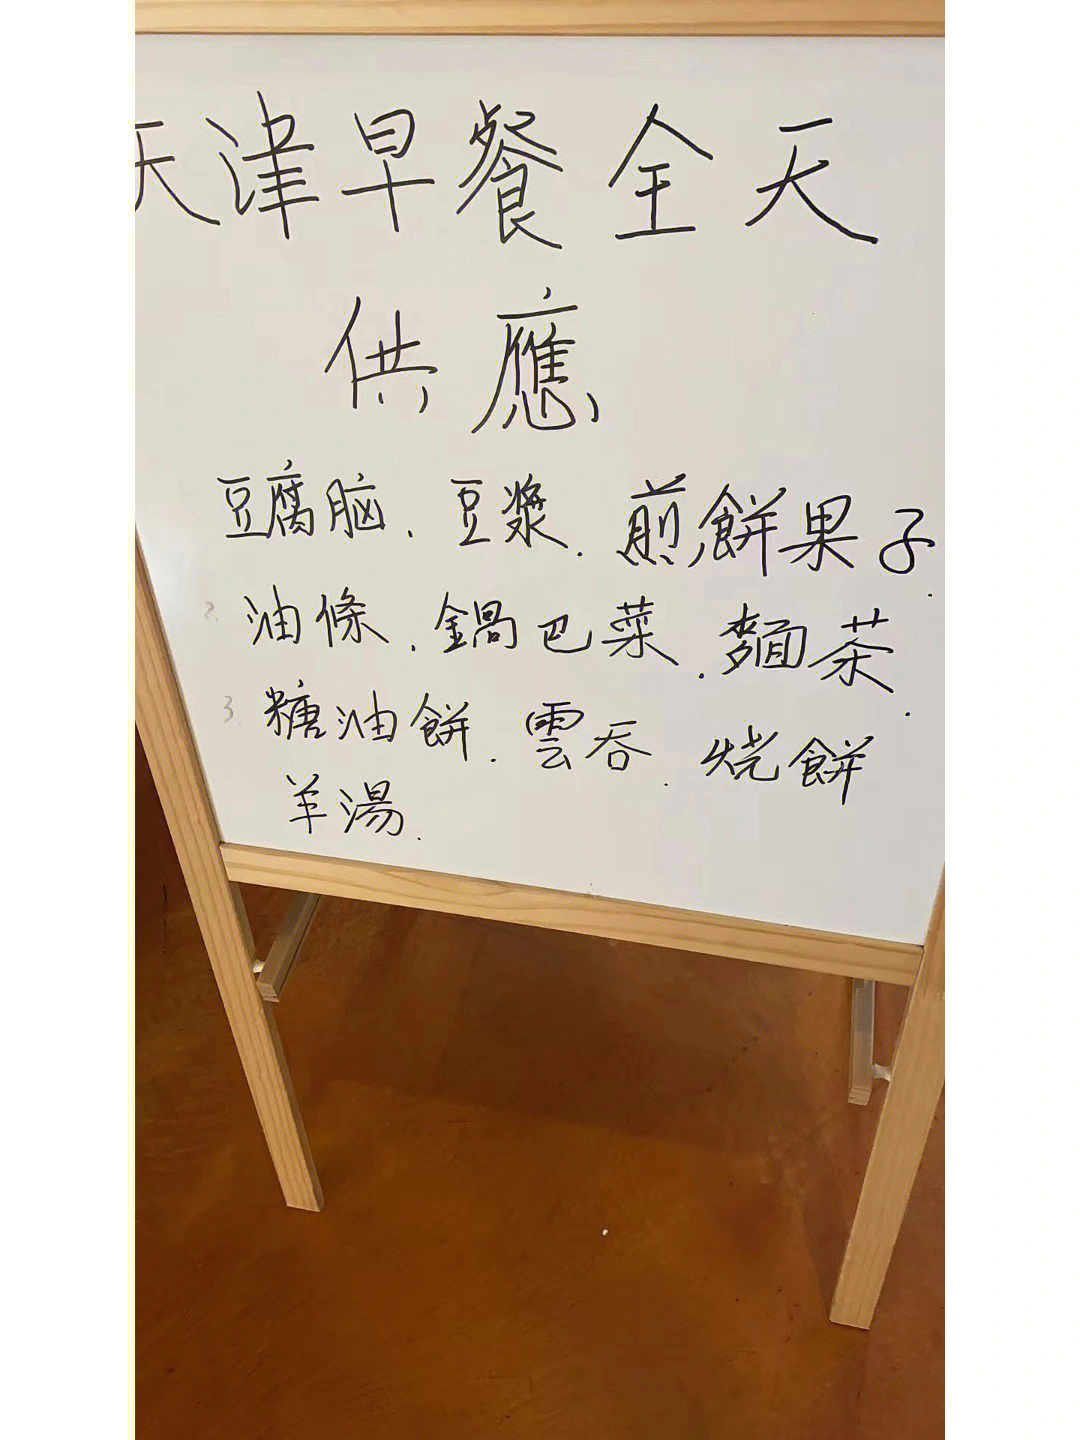 天津早餐全天
供應
豆腐脑.豆漿.煎餅果子.
2.油條.鍋巴菜.麵茶.
3.糖油餅.雲吞.烧餅
羊湯.